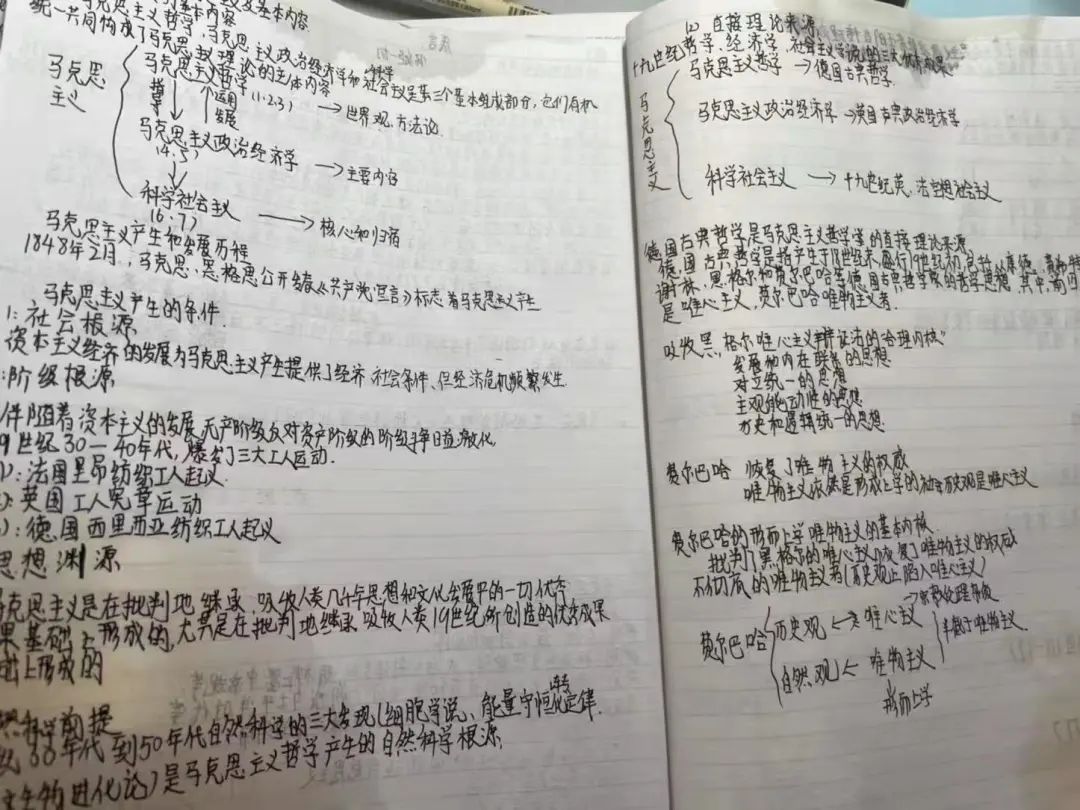 基本内容
马克思主义哲学,马克思主义政治经济学和科学社会主义是其三个基本组成部分,它们有机
统一共同构成了马克思主义理论的主体内容
马克思主义
马克思主义哲学(1.2.3) → 世界观.方法论.
指导
运用
发展
马克思主义政治经济学 → 主要内容
(4.5)
科学社会主义 → 核心和归宿
(6.7)
马克思主义产生和发展历程
1848年2月,马克思、恩格思公开发表《共产党宣言》标志着马克思主义产生
马克思主义产生的条件
1:社会根源
资本主义经济的发展为马克思主义产生提供了经济 社会条件、但经济危机频繁发生.
:阶级根源
伴随着资本主义的发展,无产阶级反对资产阶级的阶级斗争日益激化
19世纪30—40年代,爆发了三大工人运动.
):法国里昂纺织工人起义.
):英国工人宪章运动
):德国西里西亚纺织工人起义
思想渊源
马克思主义是在批判地继承、吸收人类几千年思想和文化发展中的一切优秀
果基础上形成的,尤其是在批判地继承 吸收人类19世纪所创造的优秀成果
础上形成的
然科学前提
30年代到50年代自然科学的三大发现(细胞学说、能量守恒转化定律.
生物进化论)是马克思主义哲学产生的自然科学根源
(2)直接理论来源
十九世纪哲学、经济学、社会主义学说的三大优秀成果
马克思主义
马克思主义哲学 → 德国古典哲学
马克思主义政治经济学 → 英国古典政治经济学
科学社会主义 → 十九世纪英.法空想社会主义
德国古典哲学是马克思主义哲学的直接理论来源
德国古典哲学是指产生于18世纪末.盛行19世纪初,包括康德、费希特
谢林、黑格尔和费尔巴哈等德国古典哲学家的哲学思想,其中,前四
是唯心主义,费尔巴哈唯物主义者.
吸收黑格尔唯心主义辩证法的合理内核"
发展和内在联系的思想
对立统一的思想
主观能动性的思想
历史和逻辑统一的思想
费尔巴哈 恢复了唯物主义的权威
唯物主义依然是形成上学的社会历史观是唯心主义
费尔巴哈的形而上学唯物主义的基本内核
批判了黑格尔的唯心主义恢复了唯物主义的权威
不彻底的唯物主义者(历史观上陷入唯心主义)
费尔巴哈
历史观 ← 唯心主义
自然观 ← 唯物主义
半截子唯物主义.
形而上学